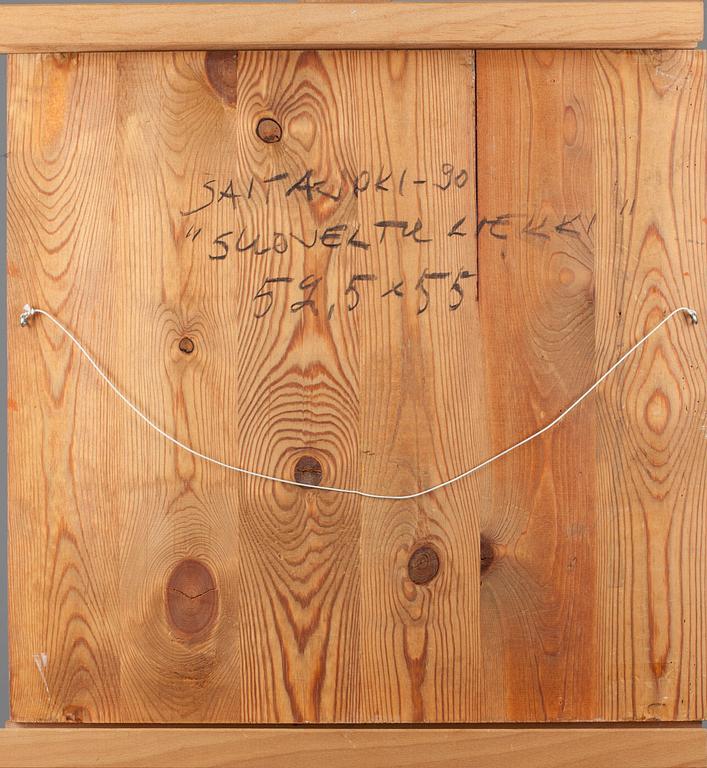 SAITAJOKI-90
"SUOJELTU LIEKKI"
52,5x55